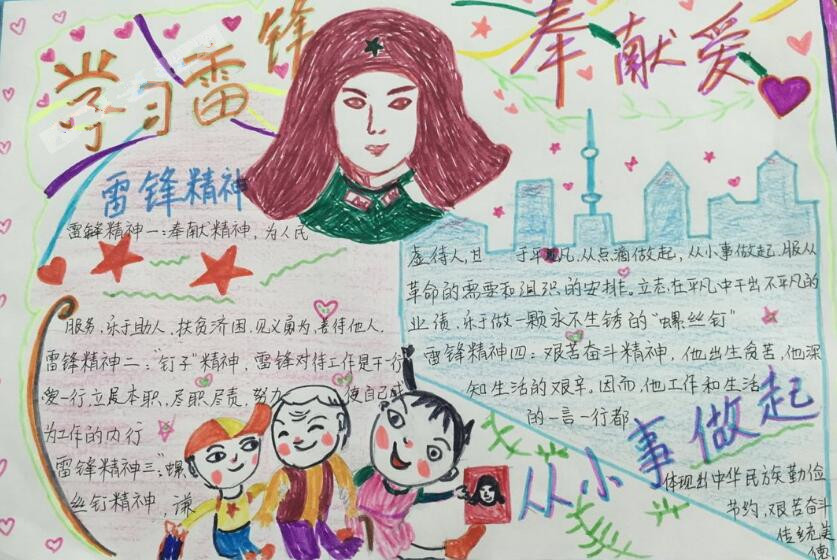 学习雷锋
奉献爱
雷锋精神
雷锋精神一:奉献精神,为人民
服务,乐于助人,扶贫济困,见义勇为,善待他人.
雷锋精神二:"钉子"精神,雷锋对待工作是干一行
爱一行,立足本职,尽职,尽责,努力 使自己成
为工作的内行
雷锋精神三:"螺
丝钉精神,谦
虚待人,甘 于平凡,从点滴做起,从小事做起,服从
革命的需要和组织的安排。立志在平凡中干出不平凡的
业绩,乐于做一颗永不生锈的"螺丝钉"
雷锋精神四:艰苦奋斗精神,他出生贫苦,他深
知生活的艰辛。因而,他工作和生活
的一言一行都
体现出中华民族勤俭
节约,艰苦奋斗
传统美
德
从小事做起